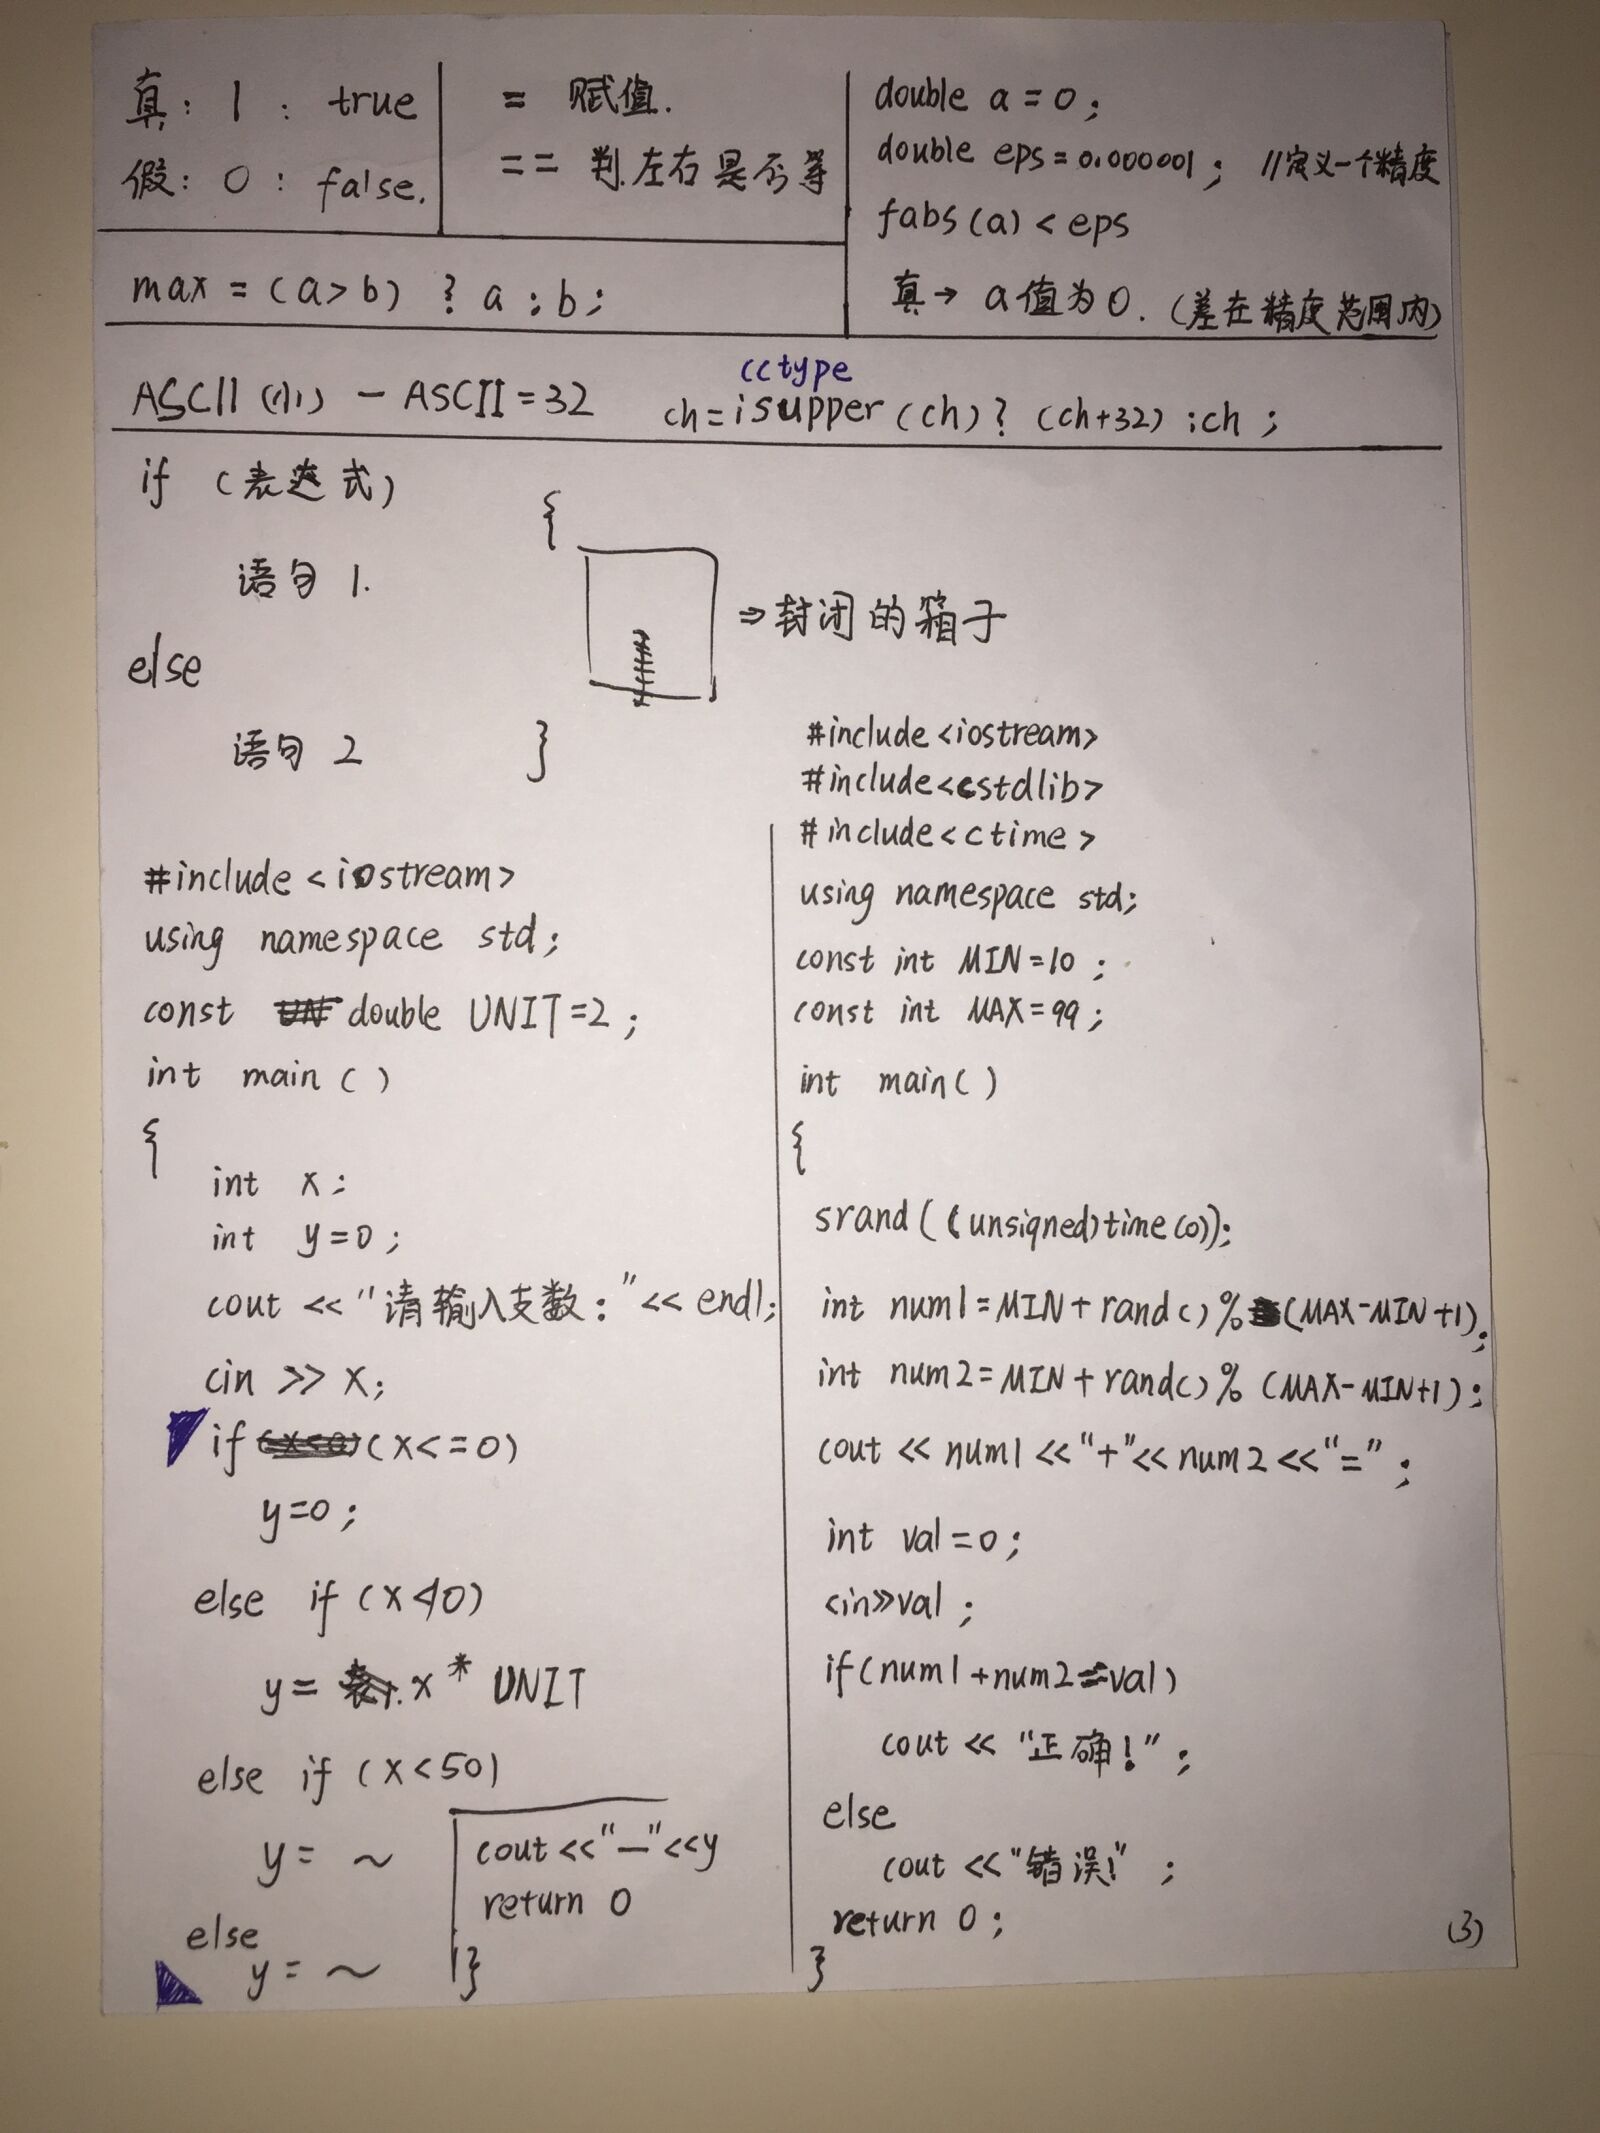 真: 1 : true
假: 0 : false.
= 赋值.
== 判.左右是否等
double a = 0;
double eps = 0.000001; //定义一个精度
fabs(a) < eps
真→ a值为0. (差在精度范围内)
max = (a>b) ? a : b;
cctype
ASCII (小) - ASCII = 32
ch = isupper(ch) ? (ch+32) : ch ;
if (表达式)
语句 1.
else
语句 2
{
⇒封闭的箱子
}
#include <iostream>
using namespace std;
const double UNIT=2;
int main ( )
{
int x;
int y=0;
cout << "请输入支数:" << endl;
cin >> x;
if (x<=0)
y=0;
else if (x<10)
y= x * UNIT
else if (x<50)
y= ~
else
y= ~
cout<<"—"<<y
return 0
}
#include <iostream>
#include<cstdlib>
#include<ctime>
using namespace std;
const int MIN=10 ;
const int MAX=99 ;
int main( )
{
srand((unsigned)time(0));
int num1=MIN+rand()%(MAX-MIN+1);
int num2=MIN+rand()%(MAX-MIN+1);
cout << num1 <<"+"<< num2 <<"=" ;
int val=0;
cin>>val ;
if(num1+num2==val)
cout << "正确!" ;
else
cout <<"错误!" ;
return 0;
}
(3)